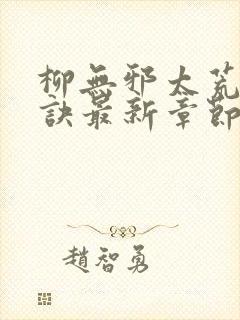 柳無邪太荒
訣最新章節
趙智勇